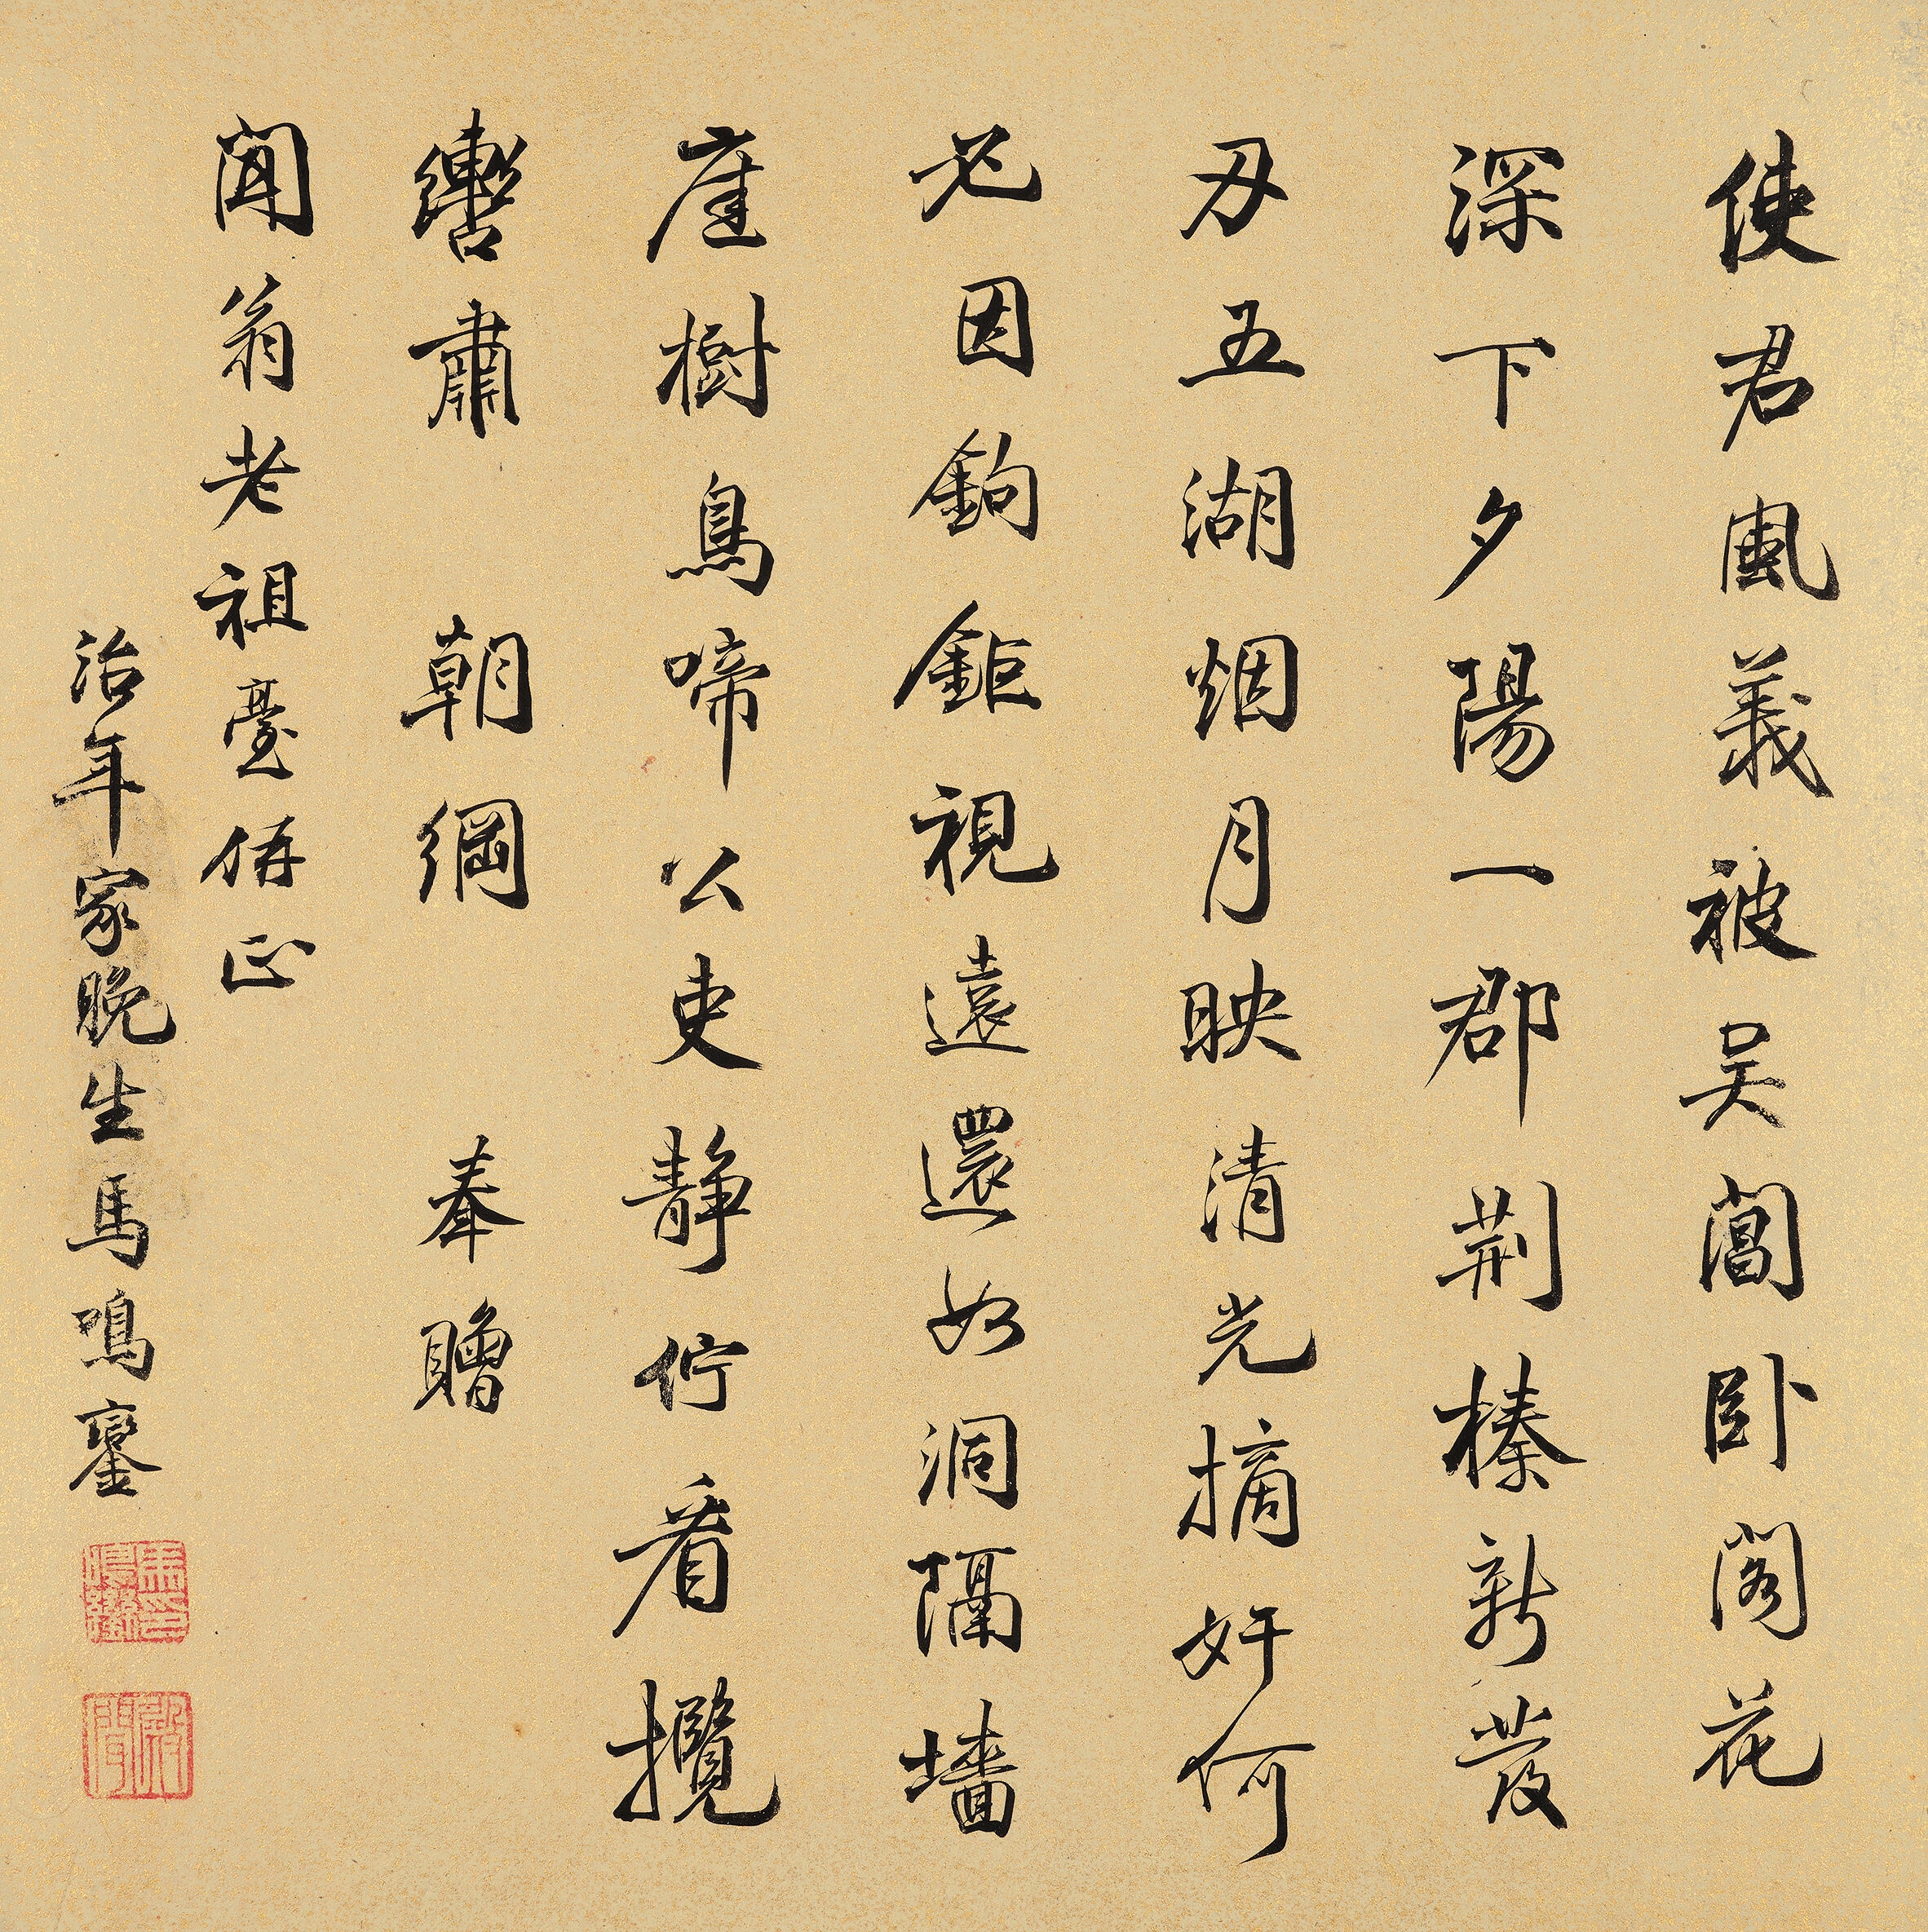 使君風義被吳閶卧閣花
深下夕陽一郡荆榛新發
刃五湖烟月映清光摘奸何
必因鉤鉅視遠還如洞隔墻
庭樹鳥啼公吏静佇看攬
轡肅朝綱奉贈
聞翁老祖臺侢正
治年家晚生馬鳴鑾